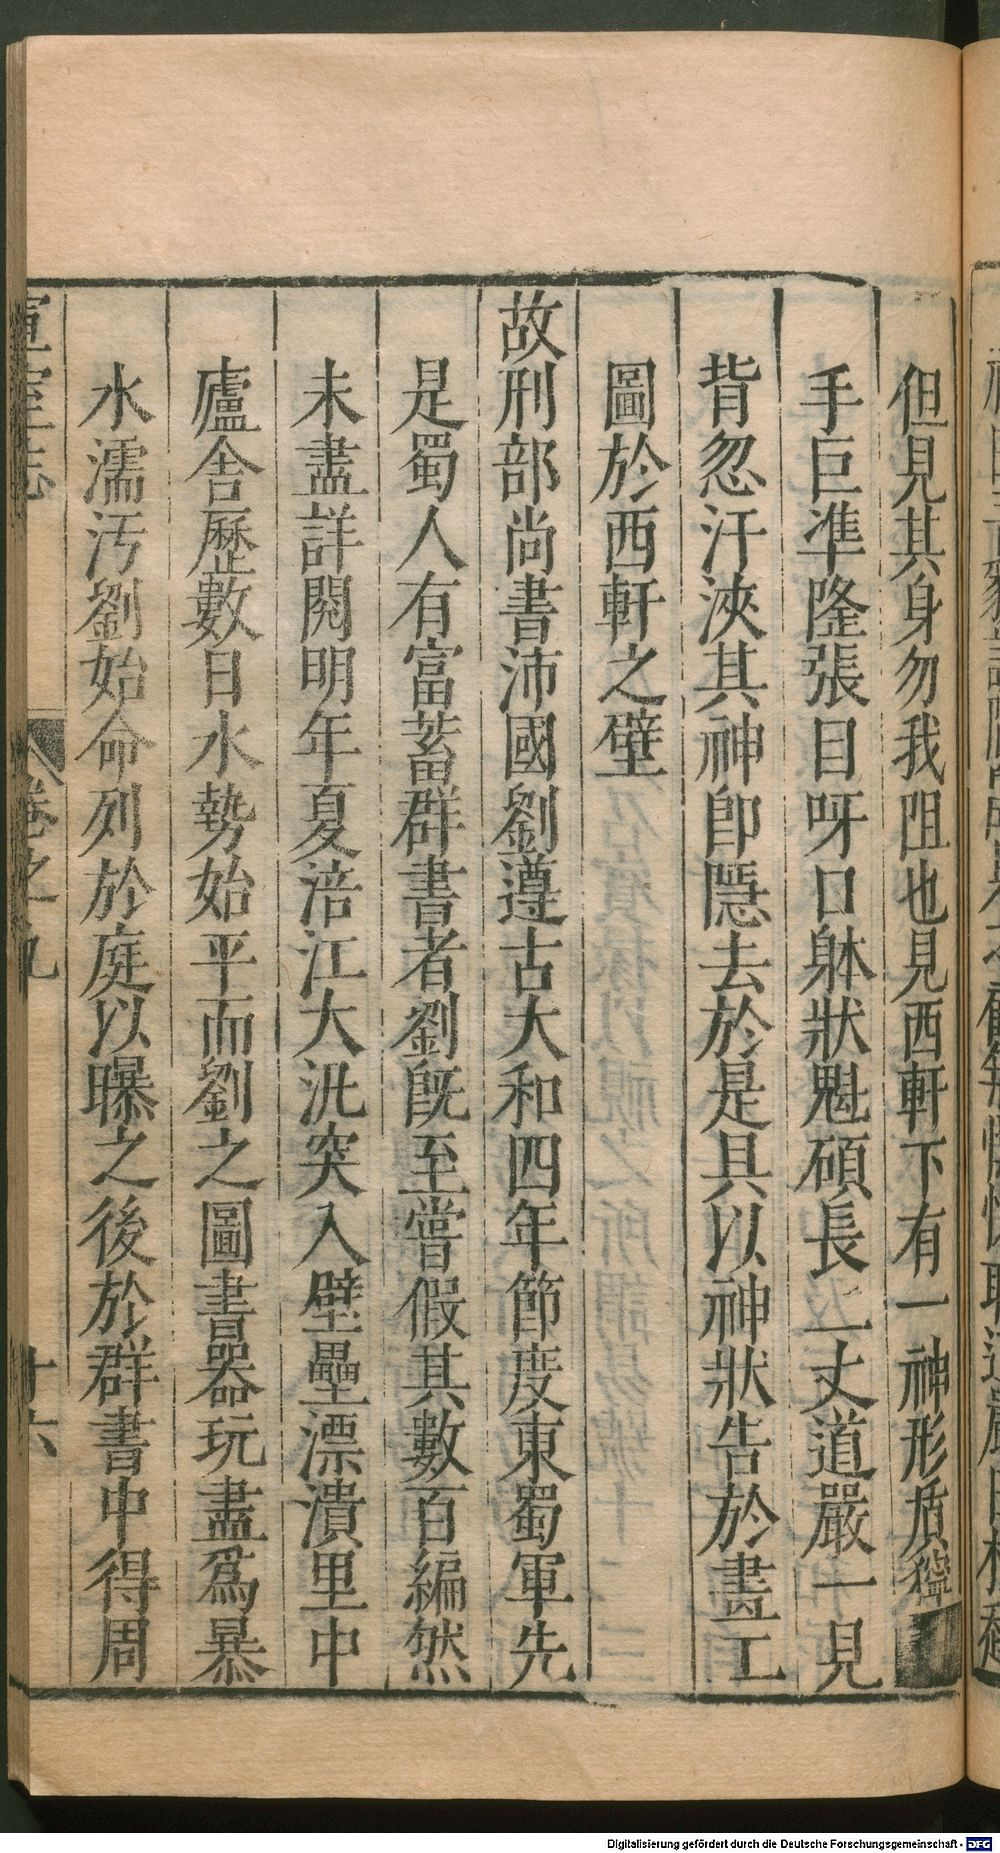 但見其身勿我阻也見西軒下有一神形质獰
手巨準隆張目呀口躰狀魁碩長二丈道嚴一見
背忽汗浹其神即隱去於是具以神狀告於畫工
圖於西軒之壁
故刑部尚書沛國劉遵古大和四年節度東蜀軍先
是蜀人有富蓄群書者劉既至嘗假其數百編然
未盡詳閱明年夏涪江大汎突入壁壘漂潰里中
廬舍歷數日水勢始平而劉之圖書器玩盡爲暴
水濡汚劉始命列於庭以曝之後於群書中得周
宣室志 卷之九 十六
Digitalisierung gefördert durch die Deutsche Forschungsgemeinschaft - DFG